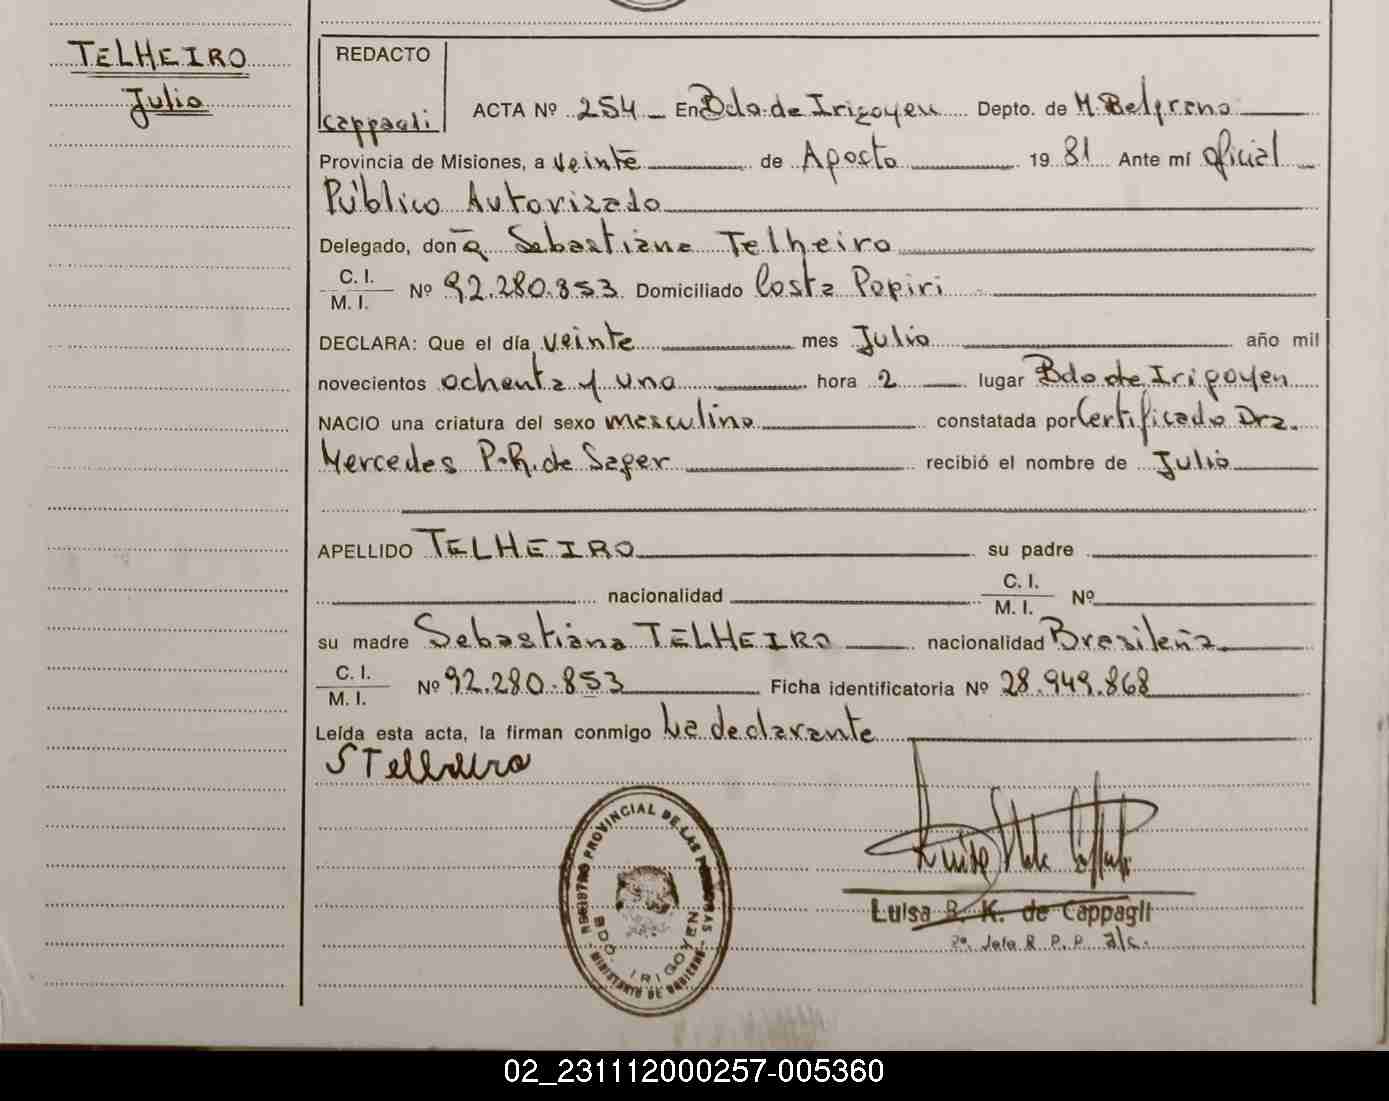 TELHEIRO
Julio
REDACTO
Cappagli
ACTA Nº 254 En Bdo. de Irigoyen Depto. de M. Belgrano
Provincia de Misiones, a veinte de Agosto 19 81 Ante mí Oficial
Público Autorizado
Delegado, don ~a Sebastiana Telheiro
C. I.
M. I. Nº 92.280.853 Domiciliado Costa Pepiri
DECLARA: Que el día veinte mes Julio año mil
novecientos ochenta y uno hora 2 lugar Bdo de Irigoyen
NACIO una criatura del sexo masculino constatada por Certificado Dra.
Mercedes P. R. de Sager recibió el nombre de Julio
APELLIDO TELHEIRO su padre
nacionalidad C. I.
M. I. Nº
su madre Sebastiana TELHEIRO nacionalidad Brasileña
C. I.
M. I. Nº 92.280.853 Ficha identificatoria Nº 28.949.868
Leída esta acta, la firman conmigo La declarante
S Telheiro
REGISTRO PROVINCIAL DE LAS PERSONAS
BDO. IRIGOYEN
MINISTERIO DE GOBIERNO
Luisa B. K. de Cappagli
2ª Jefa R. P. P. a/c.
02_231112000257-005360